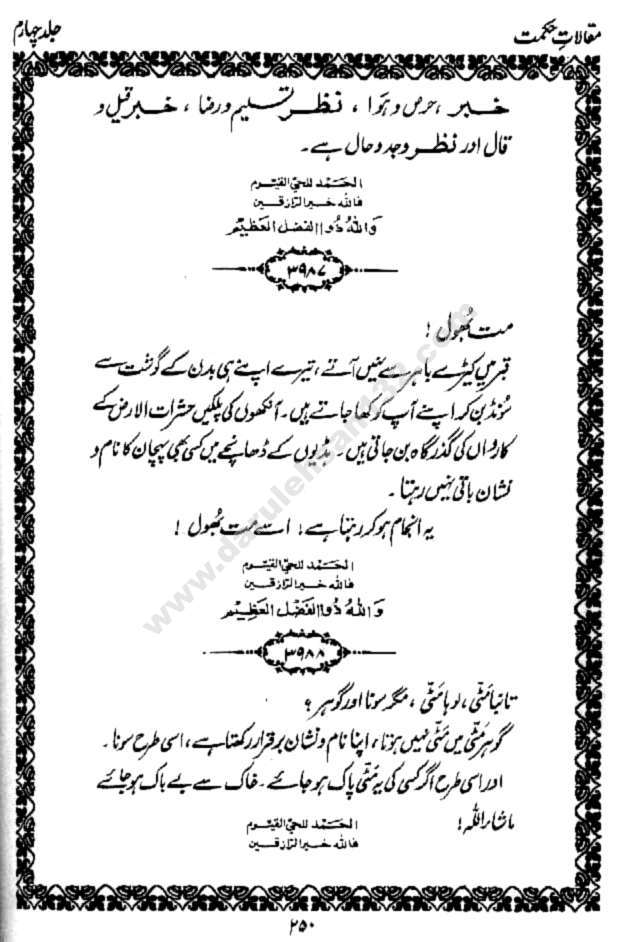 مقالاتِ حکمت
جلد چہارم
خبر، حرص و ہوا، نظر تسلیم و رضا، خبر قیل و
قال اور نظر وجد و حال ہے۔
الحَمْد للحيّ القيّوم
فالله خير الرّازقين
وَاللهُ ذُوالفَضل العَظِيْم
۳۹۸۷
مت بھول!
قبر میں کیڑے باہر سے نہیں آتے، تیرے اپنے ہی بدن کے گوشت سے
سُونڈ بن کر اپنے آپ کو کھا جاتے ہیں۔ آنکھوں کی پلکیں حشرات الارض کے
کارواں کی گذرگاہ بن جاتی ہیں۔ ہڈیوں کے ڈھانچے میں کسی بھی پہچان کا نام و
نشان باقی نہیں رہتا۔
یہ انجام ہو کر رہنا ہے! اسے مت بھول!
الحَمْد للحيّ القيّوم
فالله خير الرّازقين
وَاللهُ ذُوالفَضْل العَظِيْم
۳۹۸۸
تانبا مَٹّی، لوہا مَٹّی، مگر سونا اور گوہر؟
گوہر مَٹّی میں مَٹّی نہیں ہوتا، اپنا نام و نشان برقرار رکھتا ہے، اسی طرح سونا۔
اور اسی طرح اگر کسی کی یہ مَٹّی پاک ہو جائے۔ خاک سے بے باک ہو جائے
ماشاء اللہ!
الحَمْد للحيّ القيّوم
فالله خير الرّازقين
۲۵۰
www.darulehsan133.com